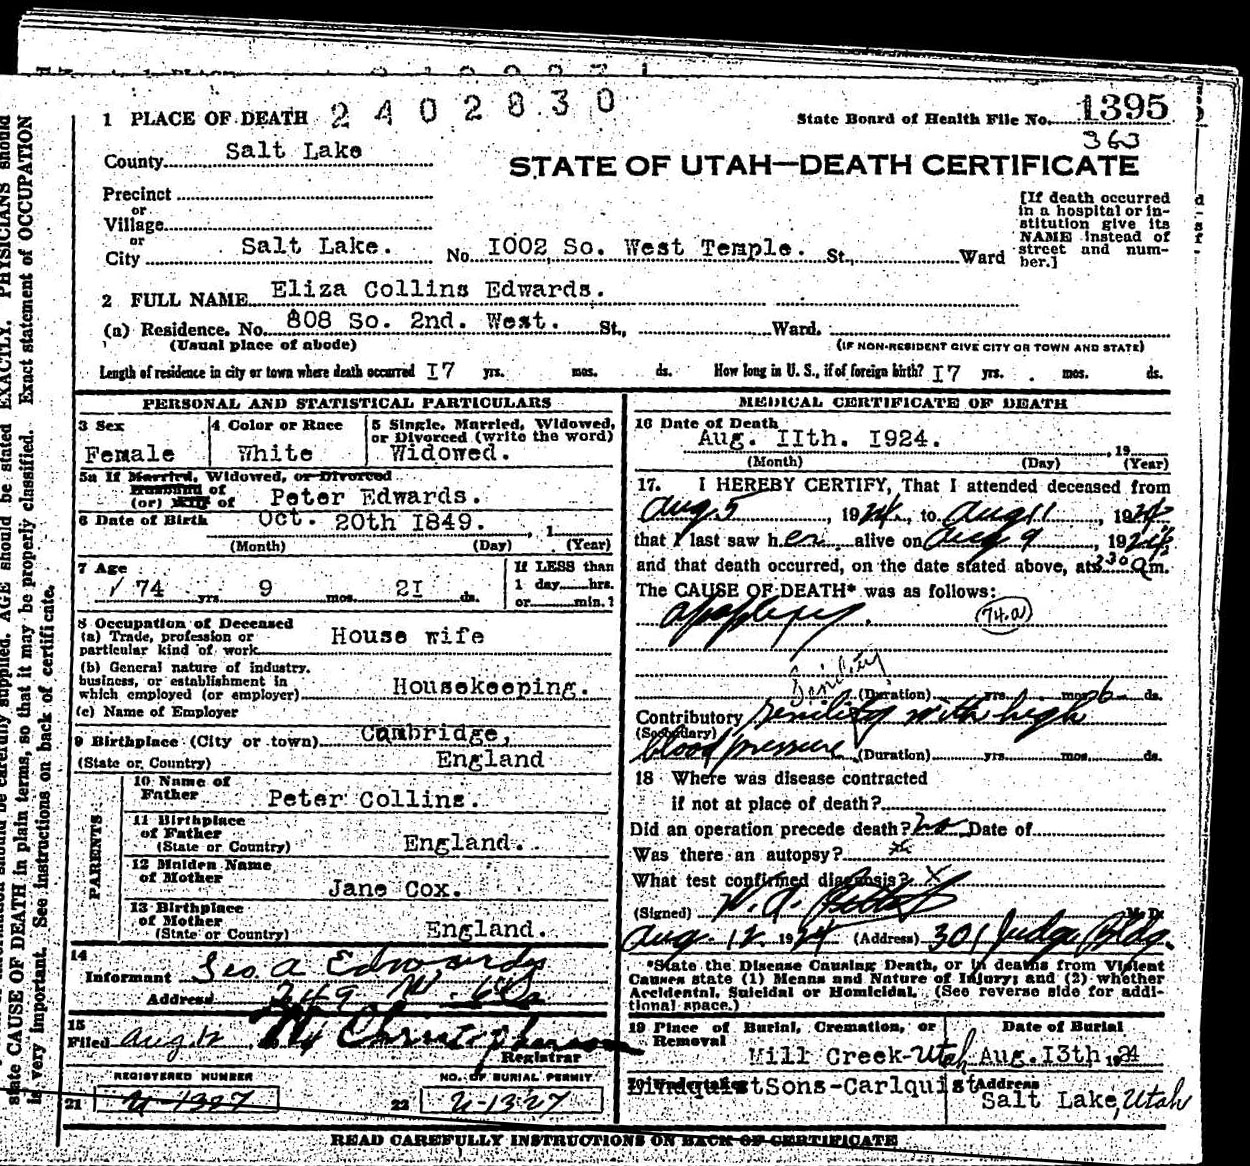 1 PLACE OF DEATH 2402830
State Board of Health File No. 1395
363
County Salt Lake
STATE OF UTAH—DEATH CERTIFICATE
Precinct
or
Village
or
City Salt Lake. No. 1002 So. West Temple. St., Ward
[If death occurred
in a hospital or in-
stitution give its
NAME instead of
street and num-
ber.]
2 FULL NAME Eliza Collins Edwards.
(a) Residence. No. 808 So. 2nd. West. St., Ward.
(Usual place of abode) (IF NON-RESIDENT GIVE CITY OR TOWN AND STATE)
Length of residence in city or town where death occurred I7 yrs. mos. ds. How long in U. S., if of foreign birth? I7 yrs. mos. ds.
PERSONAL AND STATISTICAL PARTICULARS
3 Sex
Female
4 Color or Race
White
5 Single, Married, Widowed,
or Divorced (write the word)
Widowed.
5a If Married, Widowed, or Divorced
Husband of
(or) Wife of Peter Edwards.
6 Date of Birth Oct. 20th 1849. , 1
(Month) (Day) (Year)
7 Age
74 yrs. 9 mos. 2I ds.
If LESS than
1 day hrs.
or min.?
8 Occupation of Deceased
(a) Trade, profession or
particular kind of work House wife
(b) General nature of industry.
business, or establishment in
which employed (or employer) Housekeeping.
(c) Name of Employer
9 Birthplace (City or town) Cambridge,
(State or Country) England
PARENTS
10 Name of
Father Peter Collins.
11 Birthplace
of Father
(State or Country) England.
12 Maiden Name
of Mother Jane Cox.
13 Birthplace
of Mother
(State or Country) England.
14
Informant Geo. A Edwards
Address 249 W. 6th So
15
Filed Aug 12
Registrar
REGISTERED NUMBER
21 U-1327
NO. OF BURIAL PERMIT
22 U-1327
MEDICAL CERTIFICATE OF DEATH
16 Date of Death
Aug. IIth. I924. , 19
(Month) (Day) (Year)
17. I HEREBY CERTIFY, That I attended deceased from
Aug 5, 1924, to Aug 11, 1924
that I last saw her alive on Aug 9, 1924,
and that death occurred, on the date stated above, at 3 30 a m.
The CAUSE OF DEATH* was as follows:
Apoplexy. (74.a)
Senility
(Duration) yrs. mos. 6 ds.
Contributory Senility with high
(Secondary)
blood pressure (Duration) yrs. mos. ds.
18 Where was disease contracted
if not at place of death?
Did an operation precede death? no Date of
Was there an autopsy? x
What test confirmed diagnosis? X
(Signed) M. D.
Aug. 12. 1924 (Address) 301 Judge Bldg.
*State the Disease Causing Death, or in deaths from Violent
Causes state (1) Means and Nature of Injury; and (2) whether
Accidental, Suicidal or Homicidal. (See reverse side for addi-
tional space.)
19 Place of Burial, Cremation, or
Removal
Mill Creek-Utah
Date of Burial
Aug. I3th 1924
20 Undertaker
Lindquist Sons-Carlquist
Address
Salt Lake, Utah
READ CAREFULLY INSTRUCTIONS ON BACK OF CERTIFICATE
supplied. AGE should be stated EXACTLY. PHYSICIANS should
state CAUSE OF DEATH in plain terms, so that it may be properly classified. Exact statement of OCCUPATION
is very important. See instructions on back of certificate.